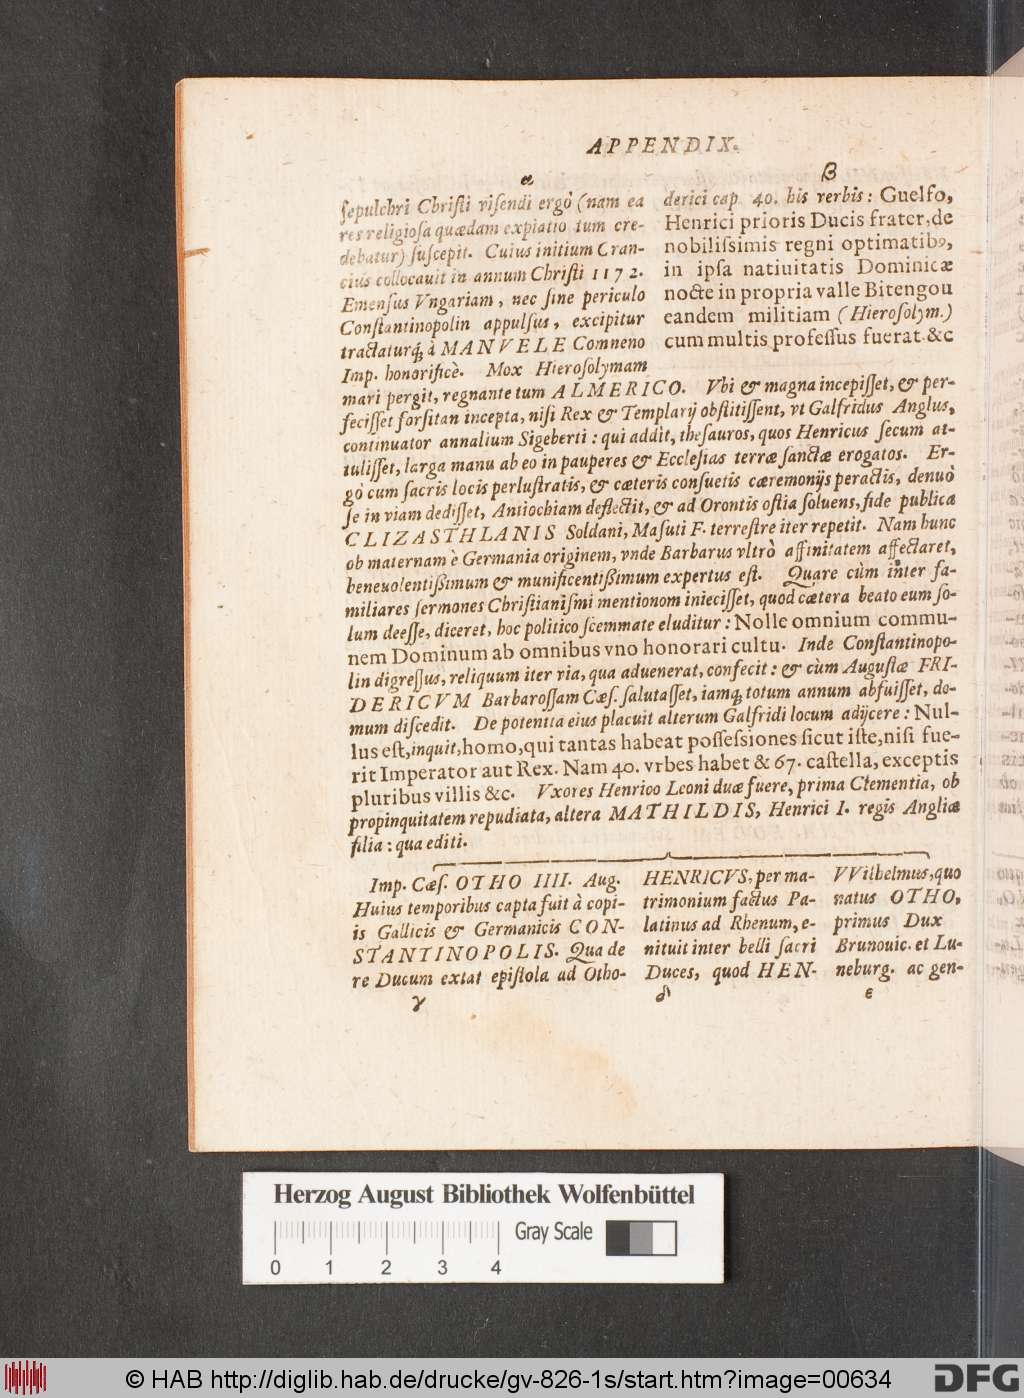 APPENDIX.
α
ſepulchri Chriſti viſendi ergò (nam ea
res religioſa quædam expiatio tum cre-
debatur) ſuſcepit. Cuius initium Cran-
cius collocauit in annum Chriſti 1172.
Emenſus Vngariam, nec ſine periculo
Conſtantinopolin appulſus, excipitur
tractaturq́; à MANVELE Comneno
Imp. honorificè. Mox Hieroſolymam
β
derici cap. 40. his verbis: Guelfo,
Henrici prioris Ducis frater, de
nobiliſsimis regni optimatibꝰ,
in ipſa natiuitatis Dominicæ
nocte in propria valle Bitengou
eandem militiam (Hieroſolym.)
cum multis profeſſus fuerat. &c
mari pergit, regnante tum ALMERICO. Vbi & magna incepiſſet, & per-
feciſſet forſitan incepta, niſi Rex & Templarij obſtitiſſent, vt Galfridus Anglus,
continuator annalium Sigeberti: qui addit, theſauros, quos Henricus ſecum at-
tuliſſet, larga manu ab eo in pauperes & Eccleſias terræ ſanctæ erogatos. Er-
gò cum ſacris locis perluſtratis, & cæteris conſuetis cæremonijs peractis, denuò
ſe in viam dediſſet, Antiochiam deflectit, & ad Orontis oſtia ſoluens, fide publica
CLIZASTHLANIS Soldani, Maſuti F. terreſtre iter repetit. Nam hunc
ob maternam è Germania originem, vnde Barbarus vltrò affinitatem affectaret,
beneuolentißimum & munificentißimum expertus eſt. Quare cùm inter fa-
miliares ſermones Chriſtianiſmi mentionom inieciſſet, quod cætera beato eum ſo-
lum deeſſe, diceret, hoc politico ſcemmate eluditur: Nolle omnium commu-
nem Dominum ab omnibus vno honorari cultu. Inde Conſtantinopo-
lin digreſſus, reliquum iter via, qua aduenerat, confecit: & cùm Auguſtæ FRI-
DERICVM Barbaroſſam Cæſ. ſalutaſſet, iamq́; totum annum abfuiſſet, do-
mum diſcedit. De potentia eius placuit alterum Galfridi locum adijcere: Nul-
lus eſt, inquit, homo, qui tantas habeat poſſeſsiones ſicut iſte, niſi fue-
rit Imperator aut Rex. Nam 40. vrbes habet & 67. caſtella, exceptis
pluribus villis &c. Vxores Henrico Leoni duæ fuere, prima Clementia, ob
propinquitatem repudiata, altera MATHILDIS, Henrici I. regis Angliæ
filia: qua editi.
Imp. Cæſ. OTHO IIII. Aug.
Huius temporibus capta fuit à copi-
is Gallicis & Germanicis CON-
STANTINOPOLIS. Qua de
re Ducum extat epiſtola ad Otho-
γ
HENRICVS, per ma-
trimonium factus Pa-
latinus ad Rhenum, e-
nituit inter belli ſacri
Duces, quod HEN-
δ
VVilhelmus, quo
natus OTHO,
primus Dux
Brunouic. et Lu-
neburg. ac gen-
ε
Herzog August Bibliothek Wolfenbüttel
Gray Scale
0 1 2 3 4
© HAB http://diglib.hab.de/drucke/gv-826-1s/start.htm?image=00634
DFG